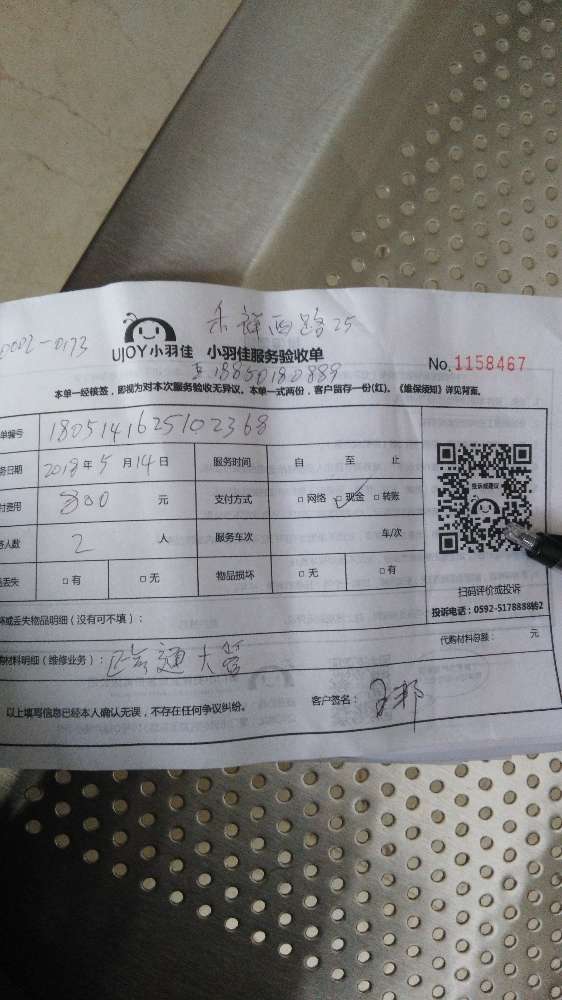 0002-0173
UJOY小羽佳 小羽佳服务验收单
No.1158467
18850180889
本单一经核签，即视为对本次服务验收无异议。本单一式两份，客户留存一份(红)。《维保须知》详见背面。
单编号 1805141625102368
务日期 2018年5月14日 服务时间 自 至 止
付费用 800 元 支付方式 □网络 □现金 □转账
务人数 2 人 服务车次 车/次
丢失 □有 □无 物品损坏 □无 □有
坏或丢失物品明细（没有可不填）：
扫码评价或投诉
投诉电话：0592-5178888转2
购材料明细（维修业务）： 通大管
代购材料总额： 元
以上填写信息已经本人确认无误，不存在任何争议纠纷。
客户签名：